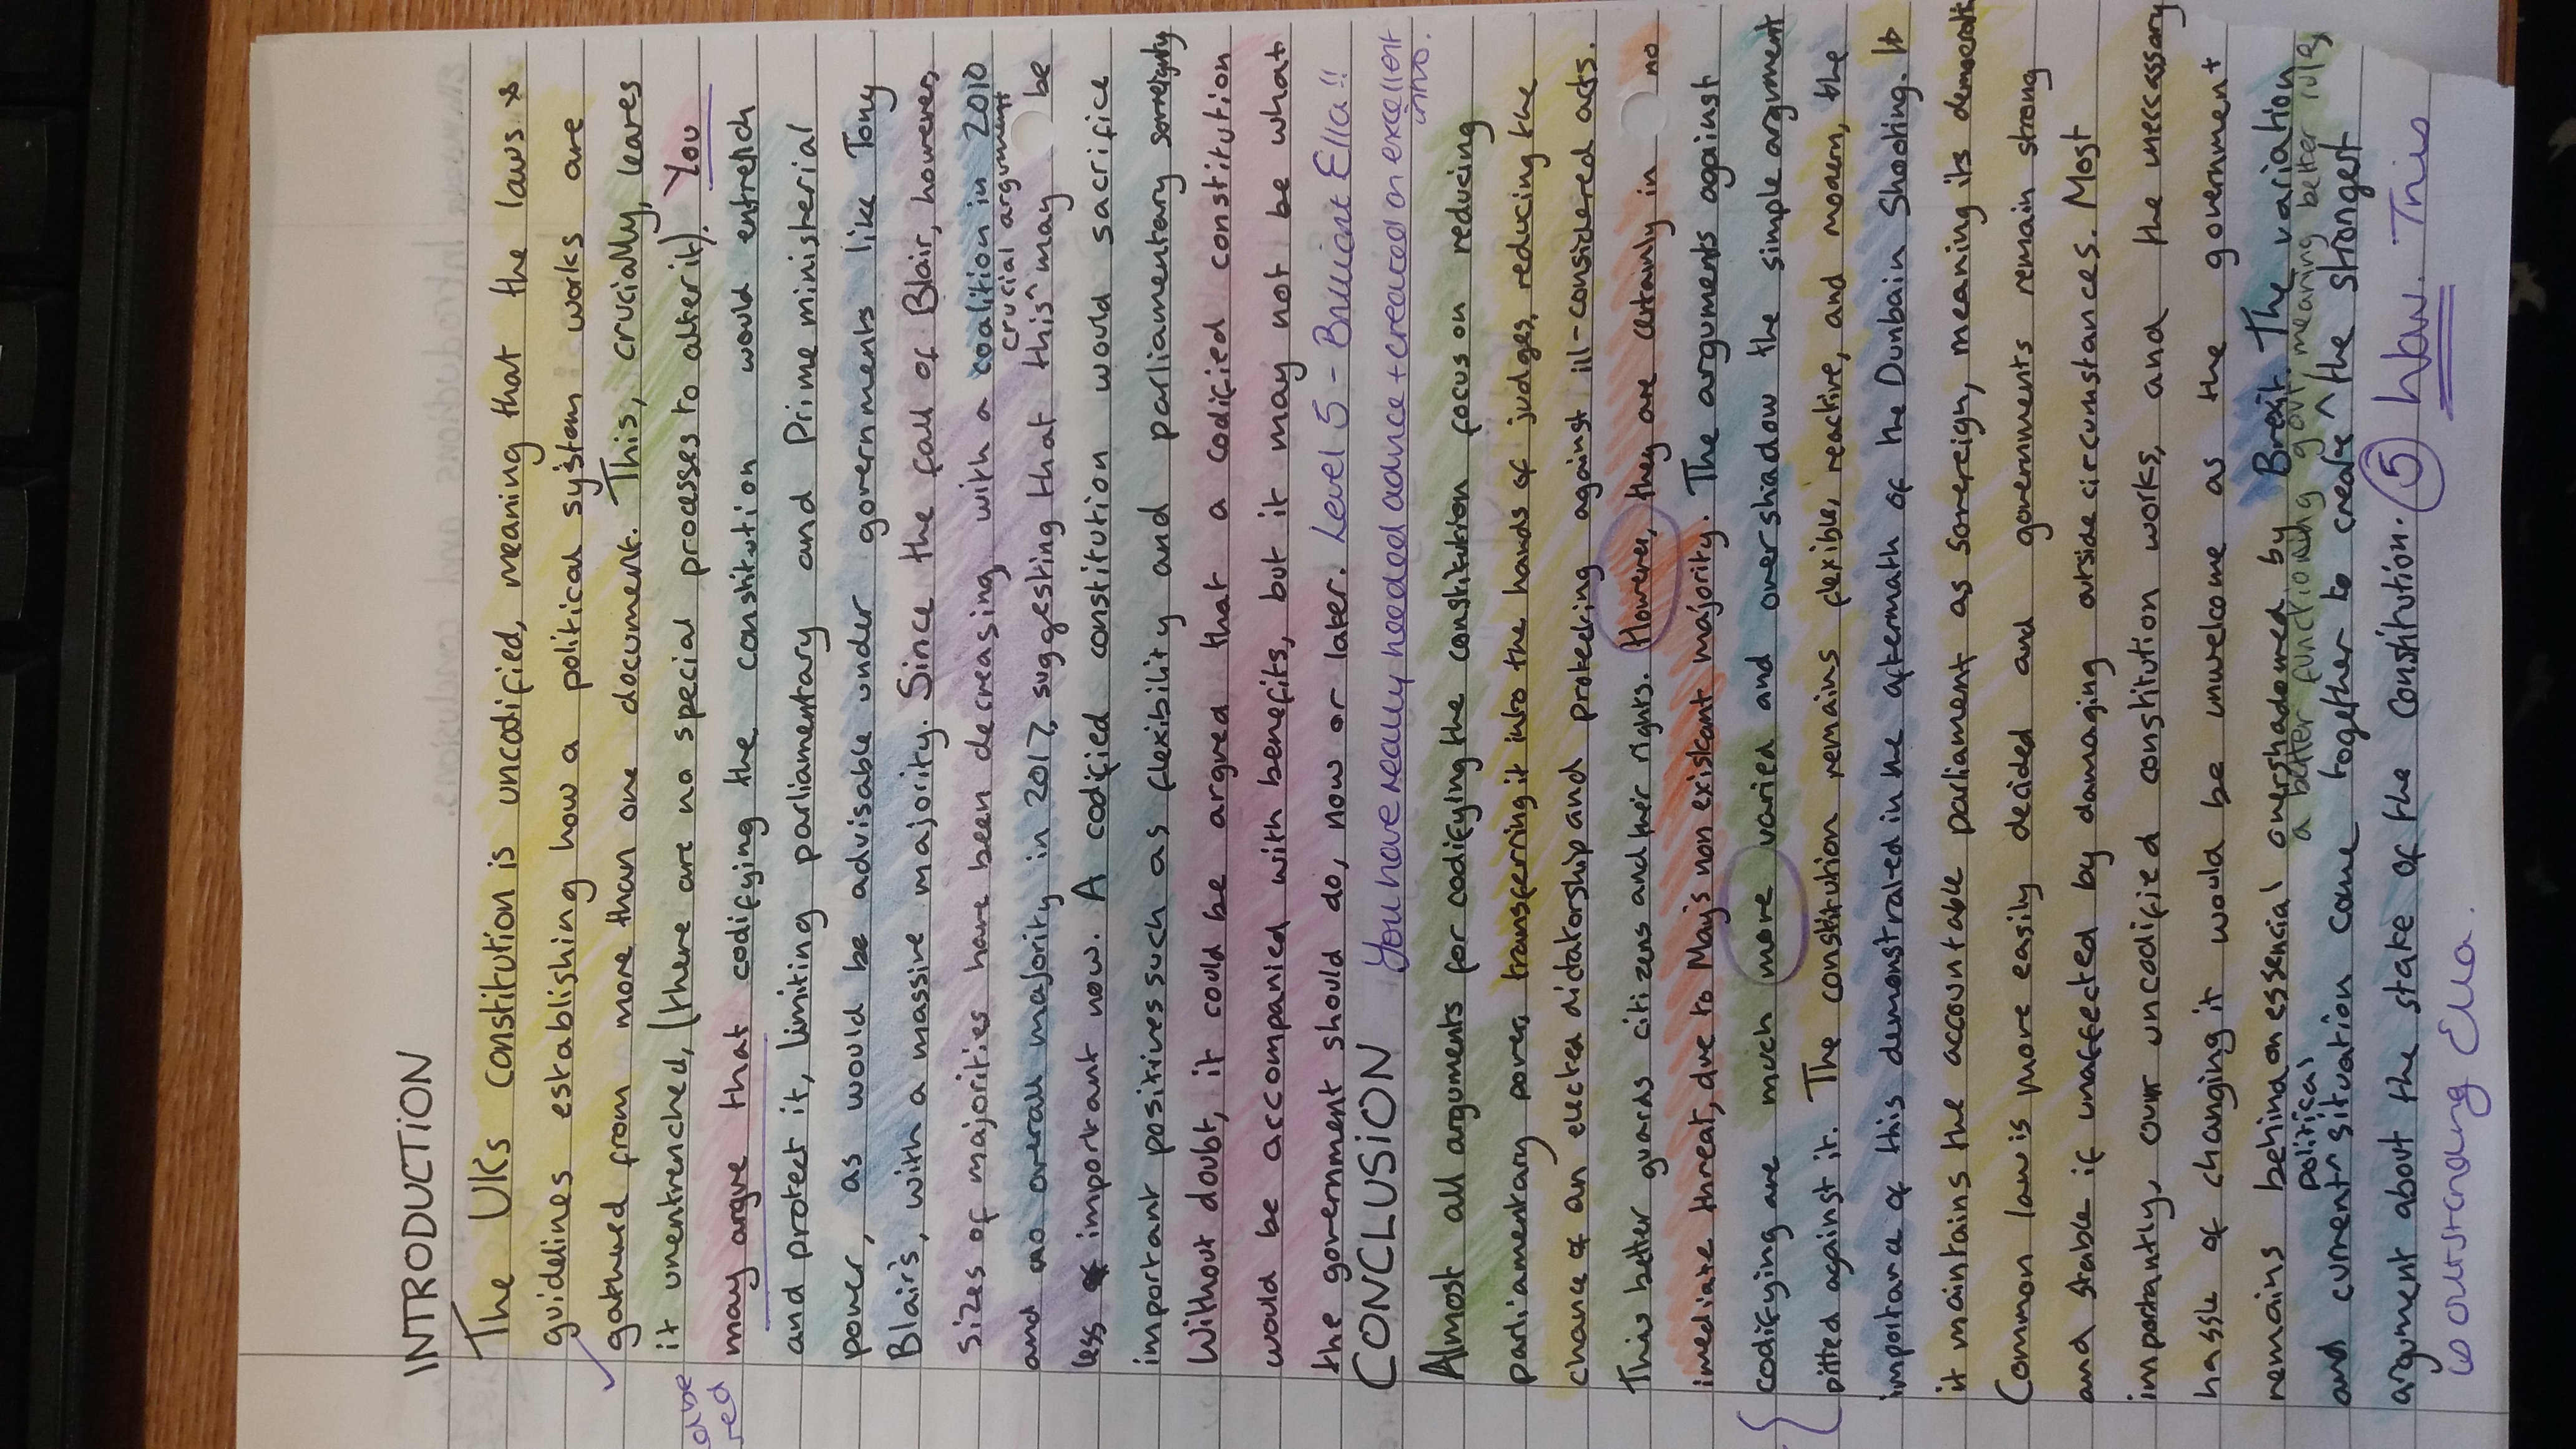 INTRODUCTION
The UKs constitution is uncodified, meaning that the laws &
guidelines establishing how a political system works are
gathered from more than one document. This, crucially, leaves
it unentrenched, (there are no special processes to alter it). You
may argue that codifying the constitution would entrench
and protect it, limiting parliamentary and Prime ministerial
power, as would be advisable under governments like Tony
Blair's, with a massive majority. Since the fall of Blair, however,
sizes of majorities have been decreasing, with a coalition in 2010
crucial argument
and no overall majority in 2017, suggesting that this ^ may be
less important now. A codified constitution would sacrifice
important positives such as flexibility and parliamentary sovreignty
Without doubt, it could be argued that a codified constitution
would be accompanied with benefits, but it may not be what
the government should do, now or later. Level 5 - Brilliant Ella!!
CONCLUSION You have really heeded advice + created an excellent
intro.
Almost all arguments for codifying the constitution focus on reducing
parliamentary power, transferring it into the hands of judges, reducing the
chance of an elected dictatorship and protecting against ill-considered acts.
This better guards citizens and their rights. However, they are certainly in no
imediate threat, due to May's non existant majority. The arguments against
codifying are much more varied and overshadow the simple argument
pitted against it. The constitution remains flexible, reactive, and modern, the
importance of this demonstrated in the aftermath of the Dunbain Shooting. It
it maintains the accountable parliament as sovereign, meaning its democratic
Common law is more easily decided and governments remain strong
and stable if unaffected by damaging outside circumstances. Most
importantly, our uncodified constitution works, and the necessary
hassle of changing it would be unwelcome as the government
remains behind an essencial overshadowed by Brexit. The variation
political a better functioning gov, meaning better rule,
and current ^ situation come together to create ^ the strongest
argument about the state of the constitution. 5 how. This
is outstanding Ella.